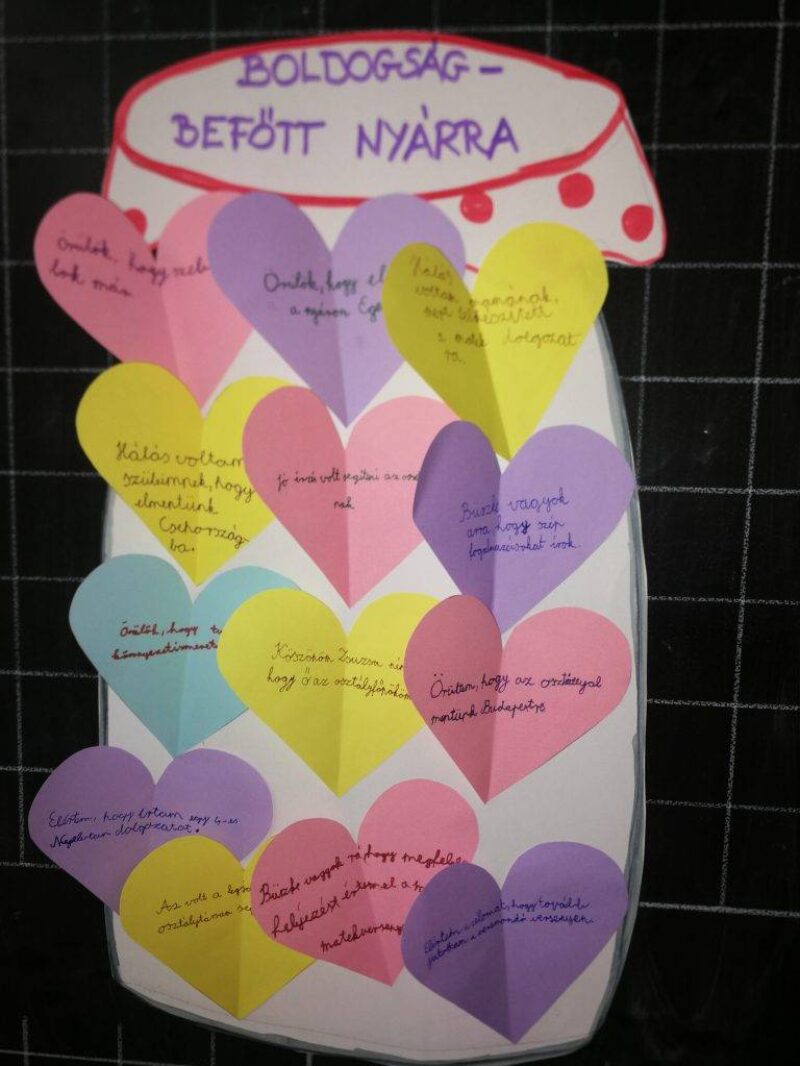 BOLDOGSÁG-
BEFŐTT NYÁRRA
Örülök, hogy
lok már.
Örülök, hogy
a nyáron
Hálás
voltam mamának,
mert
a matek dolgozat
ra.
Hálás voltam
szüleimnek, hogy
elmentünk
Csehország-
ba.
jó érzés volt segíteni az
nak
Büszke vagyok
arra, hogy szép
fogalmazásokat írok.
Örülök, hogy
környezetismeret
Köszönöm Zsuzsa
hogy ő az osztályfőnököm
Örültem, hogy az osztállyal
mentünk Budapestre
Elértem, hogy írtam egy 4-es
Nyelvtan dolgozatot.
Az volt a
osztálytársan
Büszke vagyok rá, hogy
helyezést értem el a
matekverseny
Elértem a célomat, hogy tovább
jutottam a versmondó versenyen.